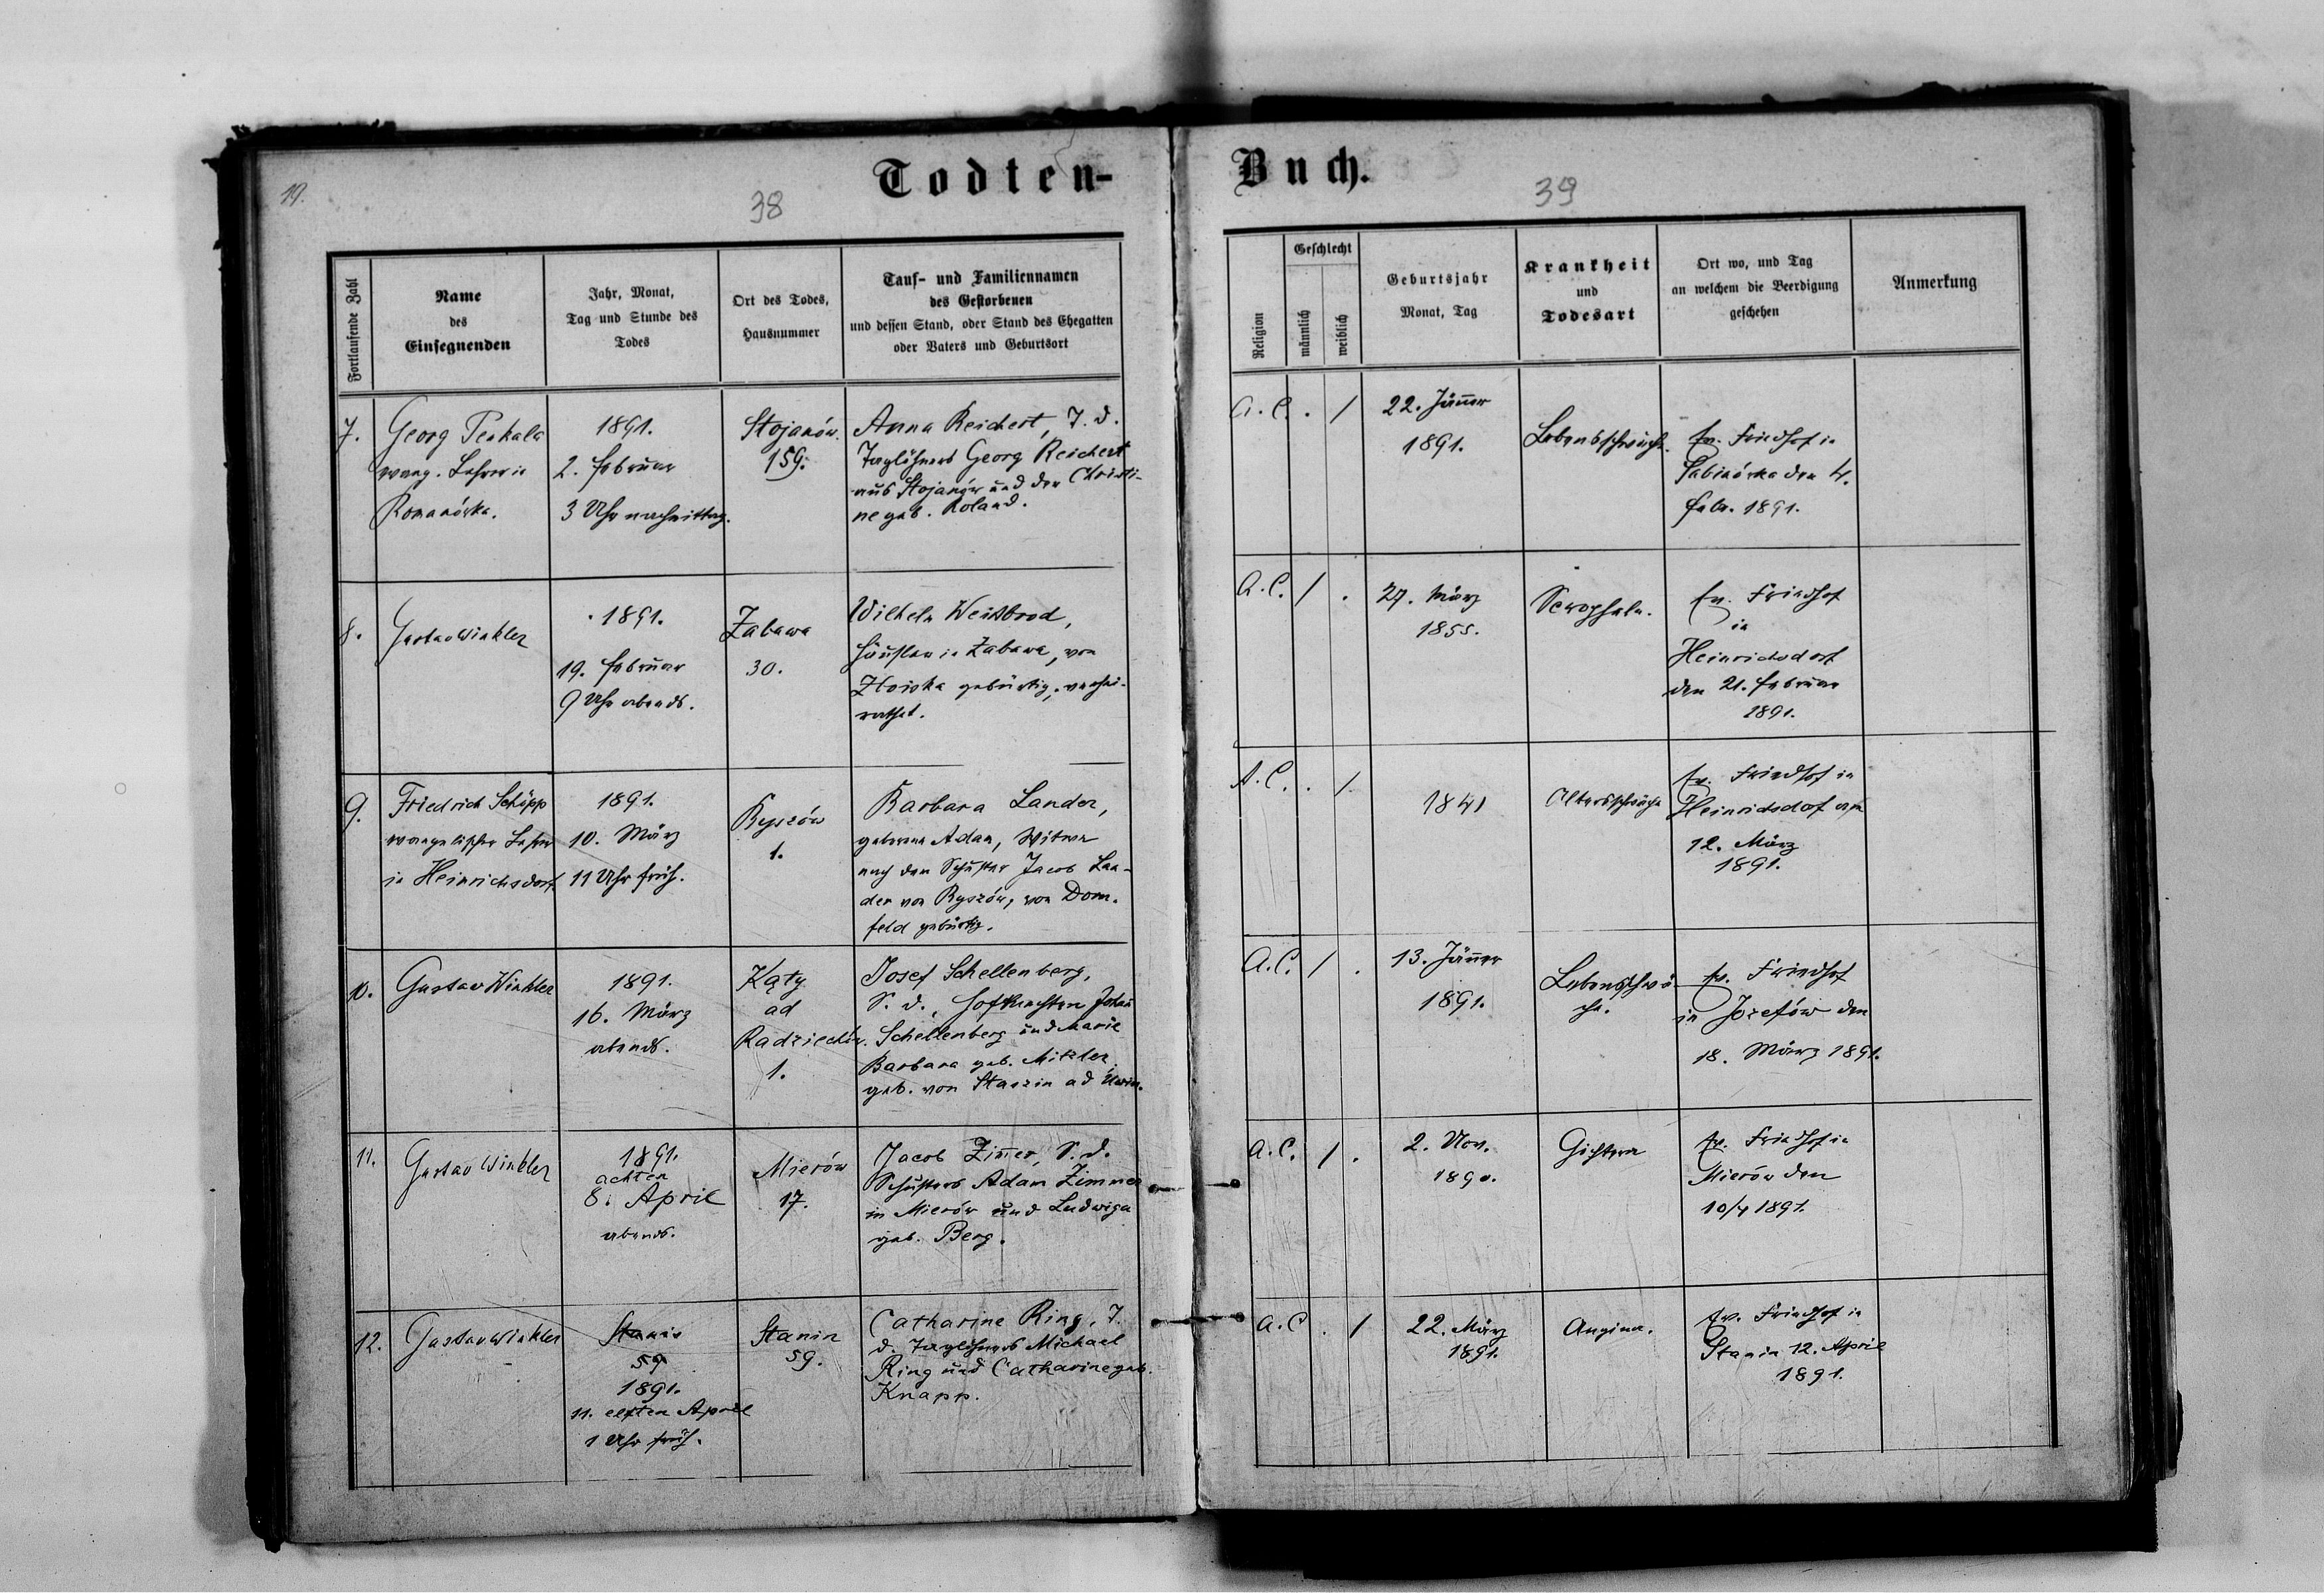 19.
38
Todten-
Buch.
39
Fortlaufende Zahl
Name
des
Einsegnenden
Jahr, Monat,
Tag und Stunde des
Todes
Ort des Todes,
Hausnummer
Tauf- und Familiennamen
des Gestorbenen
und dessen Stand, oder Stand des Ehegatten
oder Vaters und Geburtsort
Religion
Geschlecht
männlich
weiblich
Geburtsjahr
Monat, Tag
Krankheit
und
Todesart
Ort wo, und Tag
an welchem die Beerdigung
geschehen
Anmerkung
7.
Georg Peskala
evang. Lehrer in
Romanówka.
1891.
2. Februar
3 Uhr nachmittag.
Stojanów.
159.
Anna Reichert, T. d.
Taglöhners Georg Reichert
aus Stojanów und der Christi-
ne geb. Roland.
A. C. . /
22. Jänner
1891.
Lebensschwäche.
Ev. Friedhof in
Sabinówka den 4.
Febr. 1891.
8.
Gustav Winkler
1891.
19. Februar
9 Uhr abends.
Zabawa
30.
Wilhelm Weissbrod,
Häusler in Zabawa, von
gebürtig, verhei-
rathet.
A. C. / .
27. März
1855.
Scropheln.
Ev. Friedhof
in
Heinrichsdorf
den 21. Februar
1891.
9.
Friedrich Schöpp
evangelischer Lehrer
in Heinrichsdorf
1891.
10. März
11 Uhr früh.
Ryszów
1.
Barbara Lander,
geborene Adam, Witwe
nach dem Schuster Jacob Lan-
der von Ryszów, von Dorn-
feld gebürtig.
A. C. . /
1841
Altersschwäche
Ev. Friedhof in
Heinrichsdorf am
12. März
1891.
10.
Gustav Winkler
1891.
16. März
abends.
Kąty
ad
Radziechów.
1.
Josef Schellenberg,
S. d., Johan
Schellenberg und Marie
Barbara geb. Mitzler
geb. von Staszin ad
A. C. / .
13. Jänner
1891.
Lebensschwä-
che.
Ev. Friedhof
in Józefów den
18. März 1891.
11.
Gustav Winkler
1891.
achten
8. April
abends.
Mierów
17.
Jacob Zim̄er, S. d.
Schusters Adam Zimmer
in Mierów und Ludwiga
geb. Berg.
A. C. / .
2. Nov.
1890.
Gichtern
Ev. Friedhof in
Mierów den
10/4 1891.
12.
Gustav Winkler
Stanin
59
1891.
11. elften April
1 Uhr früh.
Stanin
59.
Catharine Ring, T.
d. Taglöhners Michael
Ring und Catharine geb.
Knapp.
A. C . /
22. März
1891.
Angina.
Ev. Friedhof in
Stanin 12. April
1891.